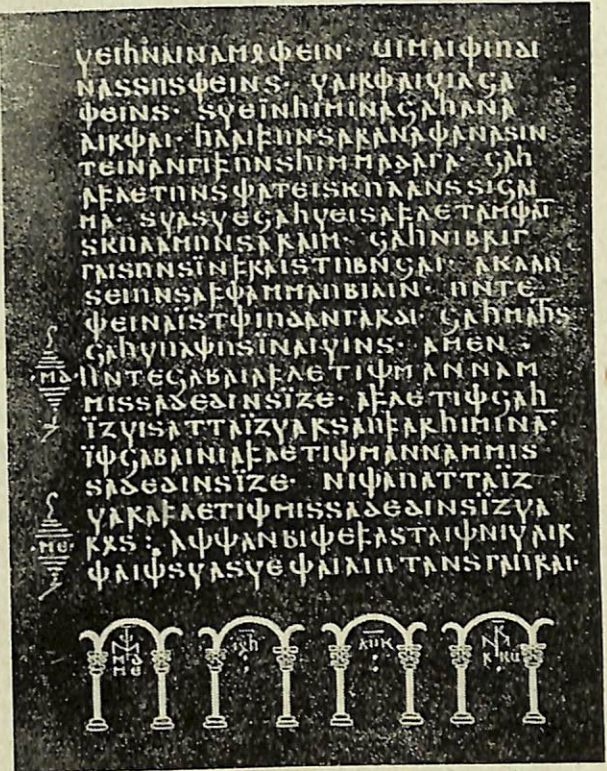 𐍅𐌴𐌹𐌷𐌽𐌰𐌹𐌽𐌰𐌼𐍉𐌸𐌴𐌹𐌽· 𐌵𐌹𐌼𐌰𐌹𐌸𐌹𐌿𐌳𐌹
𐌽𐌰𐍃𐍃𐌿𐍃𐌸𐌴𐌹𐌽𐍃· 𐍅𐌰𐌹𐍂𐌸𐌰𐌹𐍅𐌹𐌻𐌾𐌰
𐌸𐌴𐌹𐌽𐍃· 𐍃𐍅𐌴𐌹̈𐌽𐌷𐌹𐌼𐌹𐌽𐌰𐌾𐌰𐌷𐌰𐌽𐌰
𐌰𐌹𐍂𐌸𐌰𐌹· 𐌷𐌻𐌰𐌹𐍆𐌿𐌽𐍃𐌰𐍂𐌰𐌽𐌰𐌸𐌰𐌽𐌰𐍃𐌹𐌽
𐍄𐌴𐌹𐌽𐌰𐌽𐌲𐌹𐍆𐌿𐌽𐍃𐌷𐌹𐌼𐌼𐌰𐌳𐌰𐌲𐌰· 𐌾𐌰𐌷
𐌰𐍆𐌻𐌴𐍄𐌿𐌽𐍃𐌸𐌰𐍄𐌴𐌹𐍃𐌺𐌿𐌻𐌰𐌽𐍃𐍃𐌹𐌾𐌰𐌹
𐌼𐌰· 𐍃𐍅𐌰𐍃𐍅𐌴𐌾𐌰𐌷𐍅𐌴𐌹𐍃𐌰𐍆𐌻𐌴𐍄𐌰𐌼𐌸𐌰𐌹
𐍃𐌺𐌿𐌻𐌰𐌼𐌿𐌽𐍃𐌰𐍂𐌰𐌹𐌼· 𐌾𐌰𐌷𐌽𐌹𐌱𐍂𐌹𐌲
𐌲𐌰𐌹𐍃𐌿𐌽𐍃𐌹̈𐌽𐍆𐍂𐌰𐌹𐍃𐍄𐌿𐌱𐌽𐌾𐌰𐌹· 𐌰𐌺𐌻𐌰𐌿
𐍃𐌴𐌹𐌿𐌽𐍃𐌰𐍆𐌸𐌰𐌼𐌼𐌰𐌿𐌱𐌹𐌻𐌹𐌽· 𐌿𐌽𐍄𐌴
𐌸𐌴𐌹𐌽𐌰𐌹̈𐍃𐍄𐌸𐌹𐌿𐌳𐌰𐌽𐌲𐌰𐍂𐌳𐌹· 𐌾𐌰𐌷𐌼𐌰𐌷𐍄𐍃
𐌾𐌰𐌷𐍅𐌿𐌻𐌸𐌿𐍃𐌹̈𐌽𐌰𐌹𐍅𐌹𐌽𐍃· 𐌰𐌼𐌴𐌽:
·𐌼𐌳· 𐌿𐌽𐍄𐌴𐌾𐌰𐌱𐌰𐌹𐌰𐍆𐌻𐌴𐍄𐌹𐌸𐌼𐌰𐌽𐌽𐌰𐌼
𐌼𐌹𐍃𐍃𐌰𐌳𐌴𐌳𐌹𐌽𐍃𐌹̈𐌶𐌴· 𐌰𐍆𐌻𐌴𐍄𐌹𐌸𐌾𐌰𐌷
𐌹̈𐌶𐍅𐌹𐍃𐌰𐍄𐍄𐌰𐌹̈𐌶𐍅𐌰𐍂𐍃𐌰𐌿𐍆𐌰𐍂𐌷𐌹𐌼𐌹𐌽𐌰·
𐌹̈𐌸𐌾𐌰𐌱𐌰𐌹𐌽𐌹𐌰𐍆𐌻𐌴𐍄𐌹𐌸𐌼𐌰𐌽𐌽𐌰𐌼𐌼𐌹𐍃
𐍃𐌰𐌳𐌴𐌳𐌹𐌽𐍃𐌹̈𐌶𐌴· 𐌽𐌹𐌸𐌰𐌿𐌰𐍄𐍄𐌰𐌹̈𐌶
𐍅𐌰𐍂𐌰𐍆𐌻𐌴𐍄𐌹𐌸𐌼𐌹𐍃𐍃𐌰𐌳𐌴𐌳𐌹𐌽𐍃𐌹̈𐌶𐍅𐌰
·𐌼𐌴· 𐍂𐍉𐍃: 𐌰𐌸𐌸𐌰𐌽𐌱𐌹𐌸𐌴𐍆𐌰𐍃𐍄𐌰𐌹𐌸𐌽𐌹𐍅𐌰𐌹𐍂
𐌸𐌰𐌹𐌸𐍃𐍅𐌰𐍃𐍅𐌴𐌸𐌰𐌹𐌻𐌹𐌿𐍄𐌰𐌽𐍃𐌲𐌰𐌿𐍂𐌰𐌹·